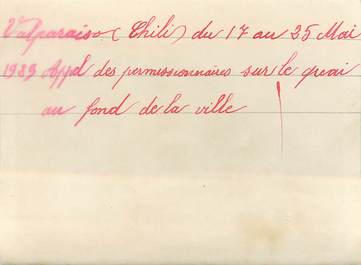 Valparaiso (Chili) du 17 au 25 Mai
1939 Appel des permissionnaires sur le quai
au fond de la ville